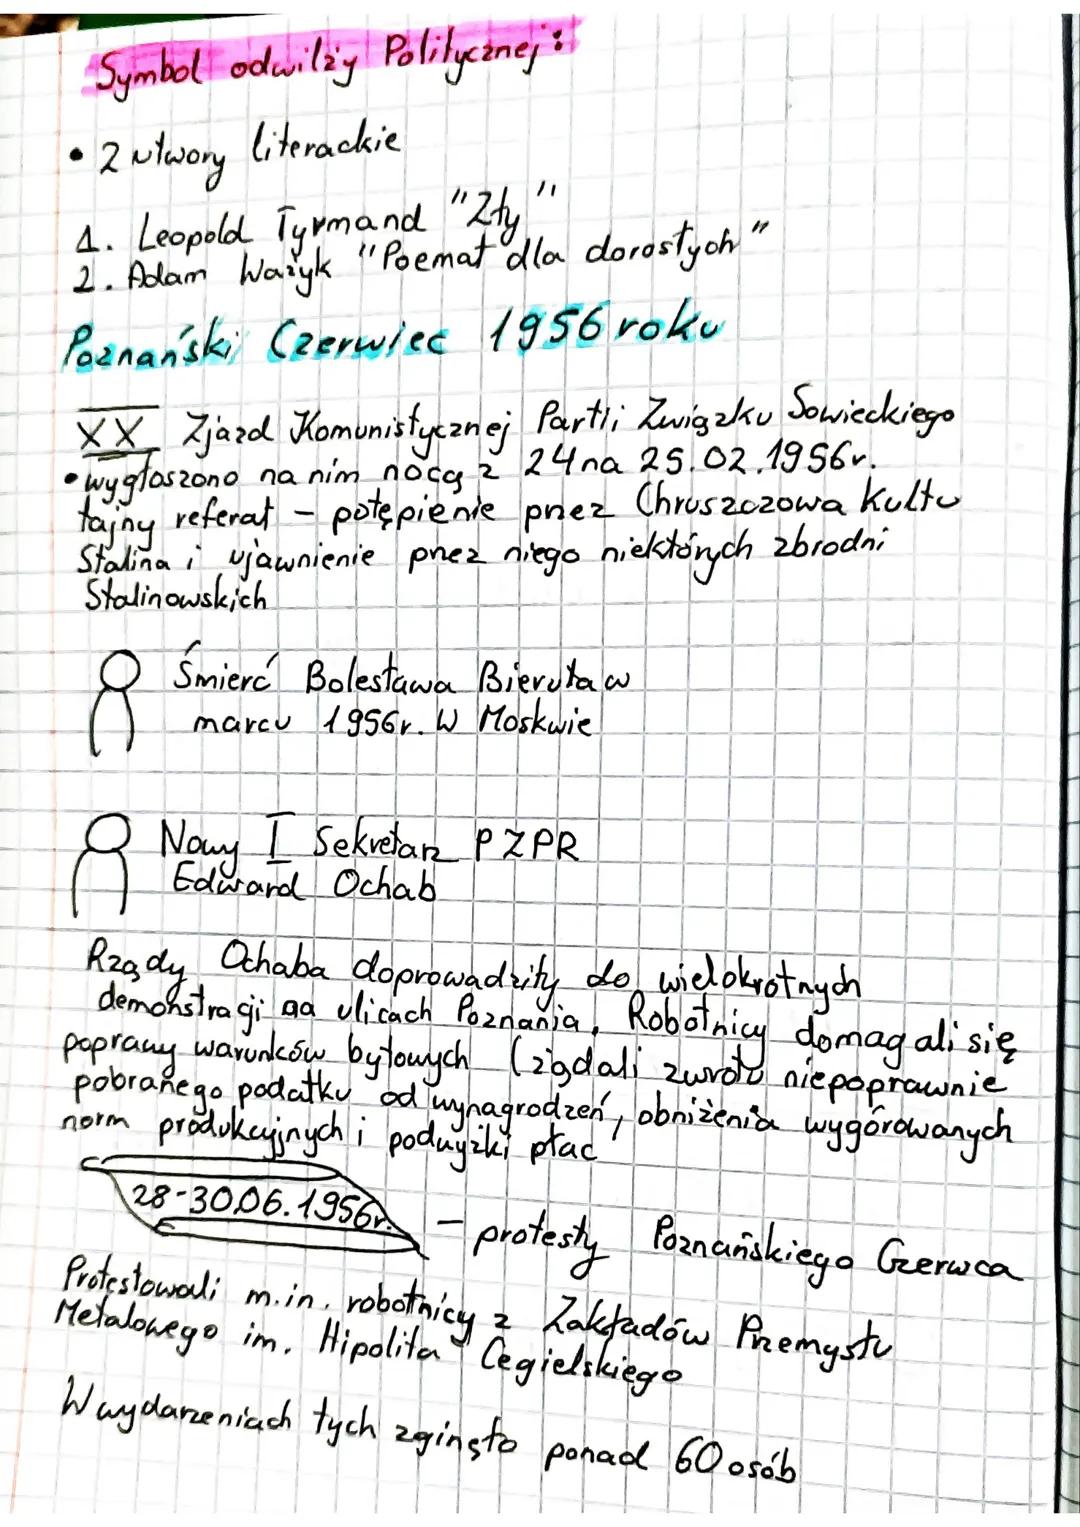 Symbol odwilży Politycznej:
• 2 utwory literackie
1. Leopold Tyrmand "Zły"
2. Adam Ważyk "Poemat dla dorosłych"
Poznański Czerwiec 1956 roku
XX Zjazd Komunistycznej Partii Związku Sowieckiego
• wygłoszono na nim nocą z 24 na 25.02.1956r.
tajny referat - potępienie przez Chruszczowa Kultu
Stalina i ujawnienie przez niego niektórych zbrodni
Stalinowskich
Śmierć Bolesława Bieruta w
marcu 1956r. W Moskwie
Nowy I Sekretarz PZPR
Edward Ochab
Rządy Ochaba doprowadziły do wielokrotnych
demonstracji na ulicach Poznania. Robotnicy domagali się
poprawy warunków bytowych (żądali zwrotu niepoprawnie
pobranego podatku od wynagrodzeń, obniżenia wygórowanych
norm produkcyjnych i podwyżki płac
28-30.06.1956r. - protesty Poznańskiego Czerwca
Protestowali m.in. robotnicy z Zakładów Przemysłu
Metalowego im. Hipolita Cegielskiego
W wydarzeniach tych zginęło ponad 60 osób